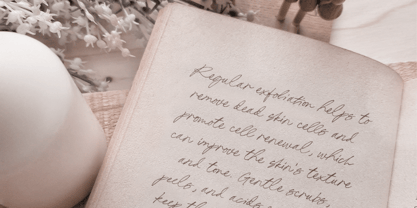 Regular exfoliation helps to
remove dead skin cells and
promote cell renewal, which
can improve the skin's texture
and tone. Gentle scrubs,
peels, and acids
keep the